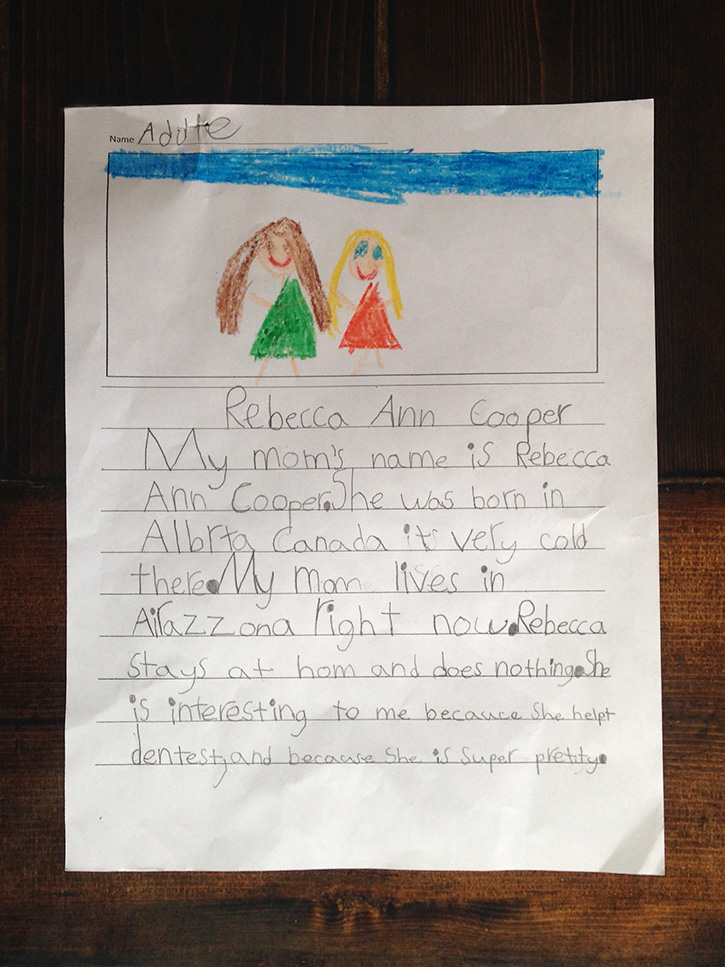 Name Addte
Rebecca Ann Cooper
My mom's name is Rebecca
Ann Cooper. She was born in
Albrta Canada it's very cold
there. My mom lives in
Airazzona right now. Rebecca
stays at hom and does nothing. She
is interesting to me becauce she helpt
dentest, and because she is super pretity.